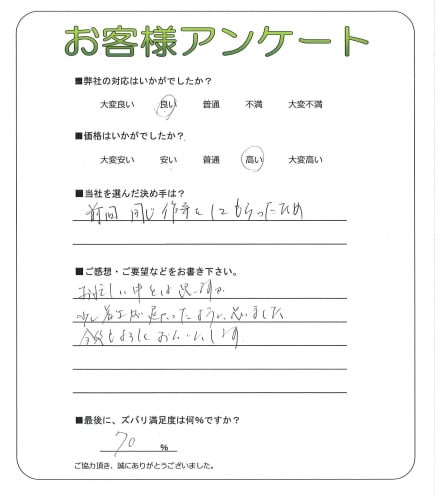 お客様アンケート
■弊社の対応はいかがでしたか？
大変良い 良い 普通 不満 大変不満
■価格はいかがでしたか？
大変安い 安い 普通 高い 大変高い
■当社を選んだ決め手は？
前回 同じ作業をしてもらったため
■ご感想・ご要望などをお書き下さい。
お忙しい中とは思いますが
少し 遅かったように思いました
今後もよろしくおねがいします
■最後に、ズバリ満足度は何％ですか？
70 ％
ご協力頂き、誠にありがとうございました。